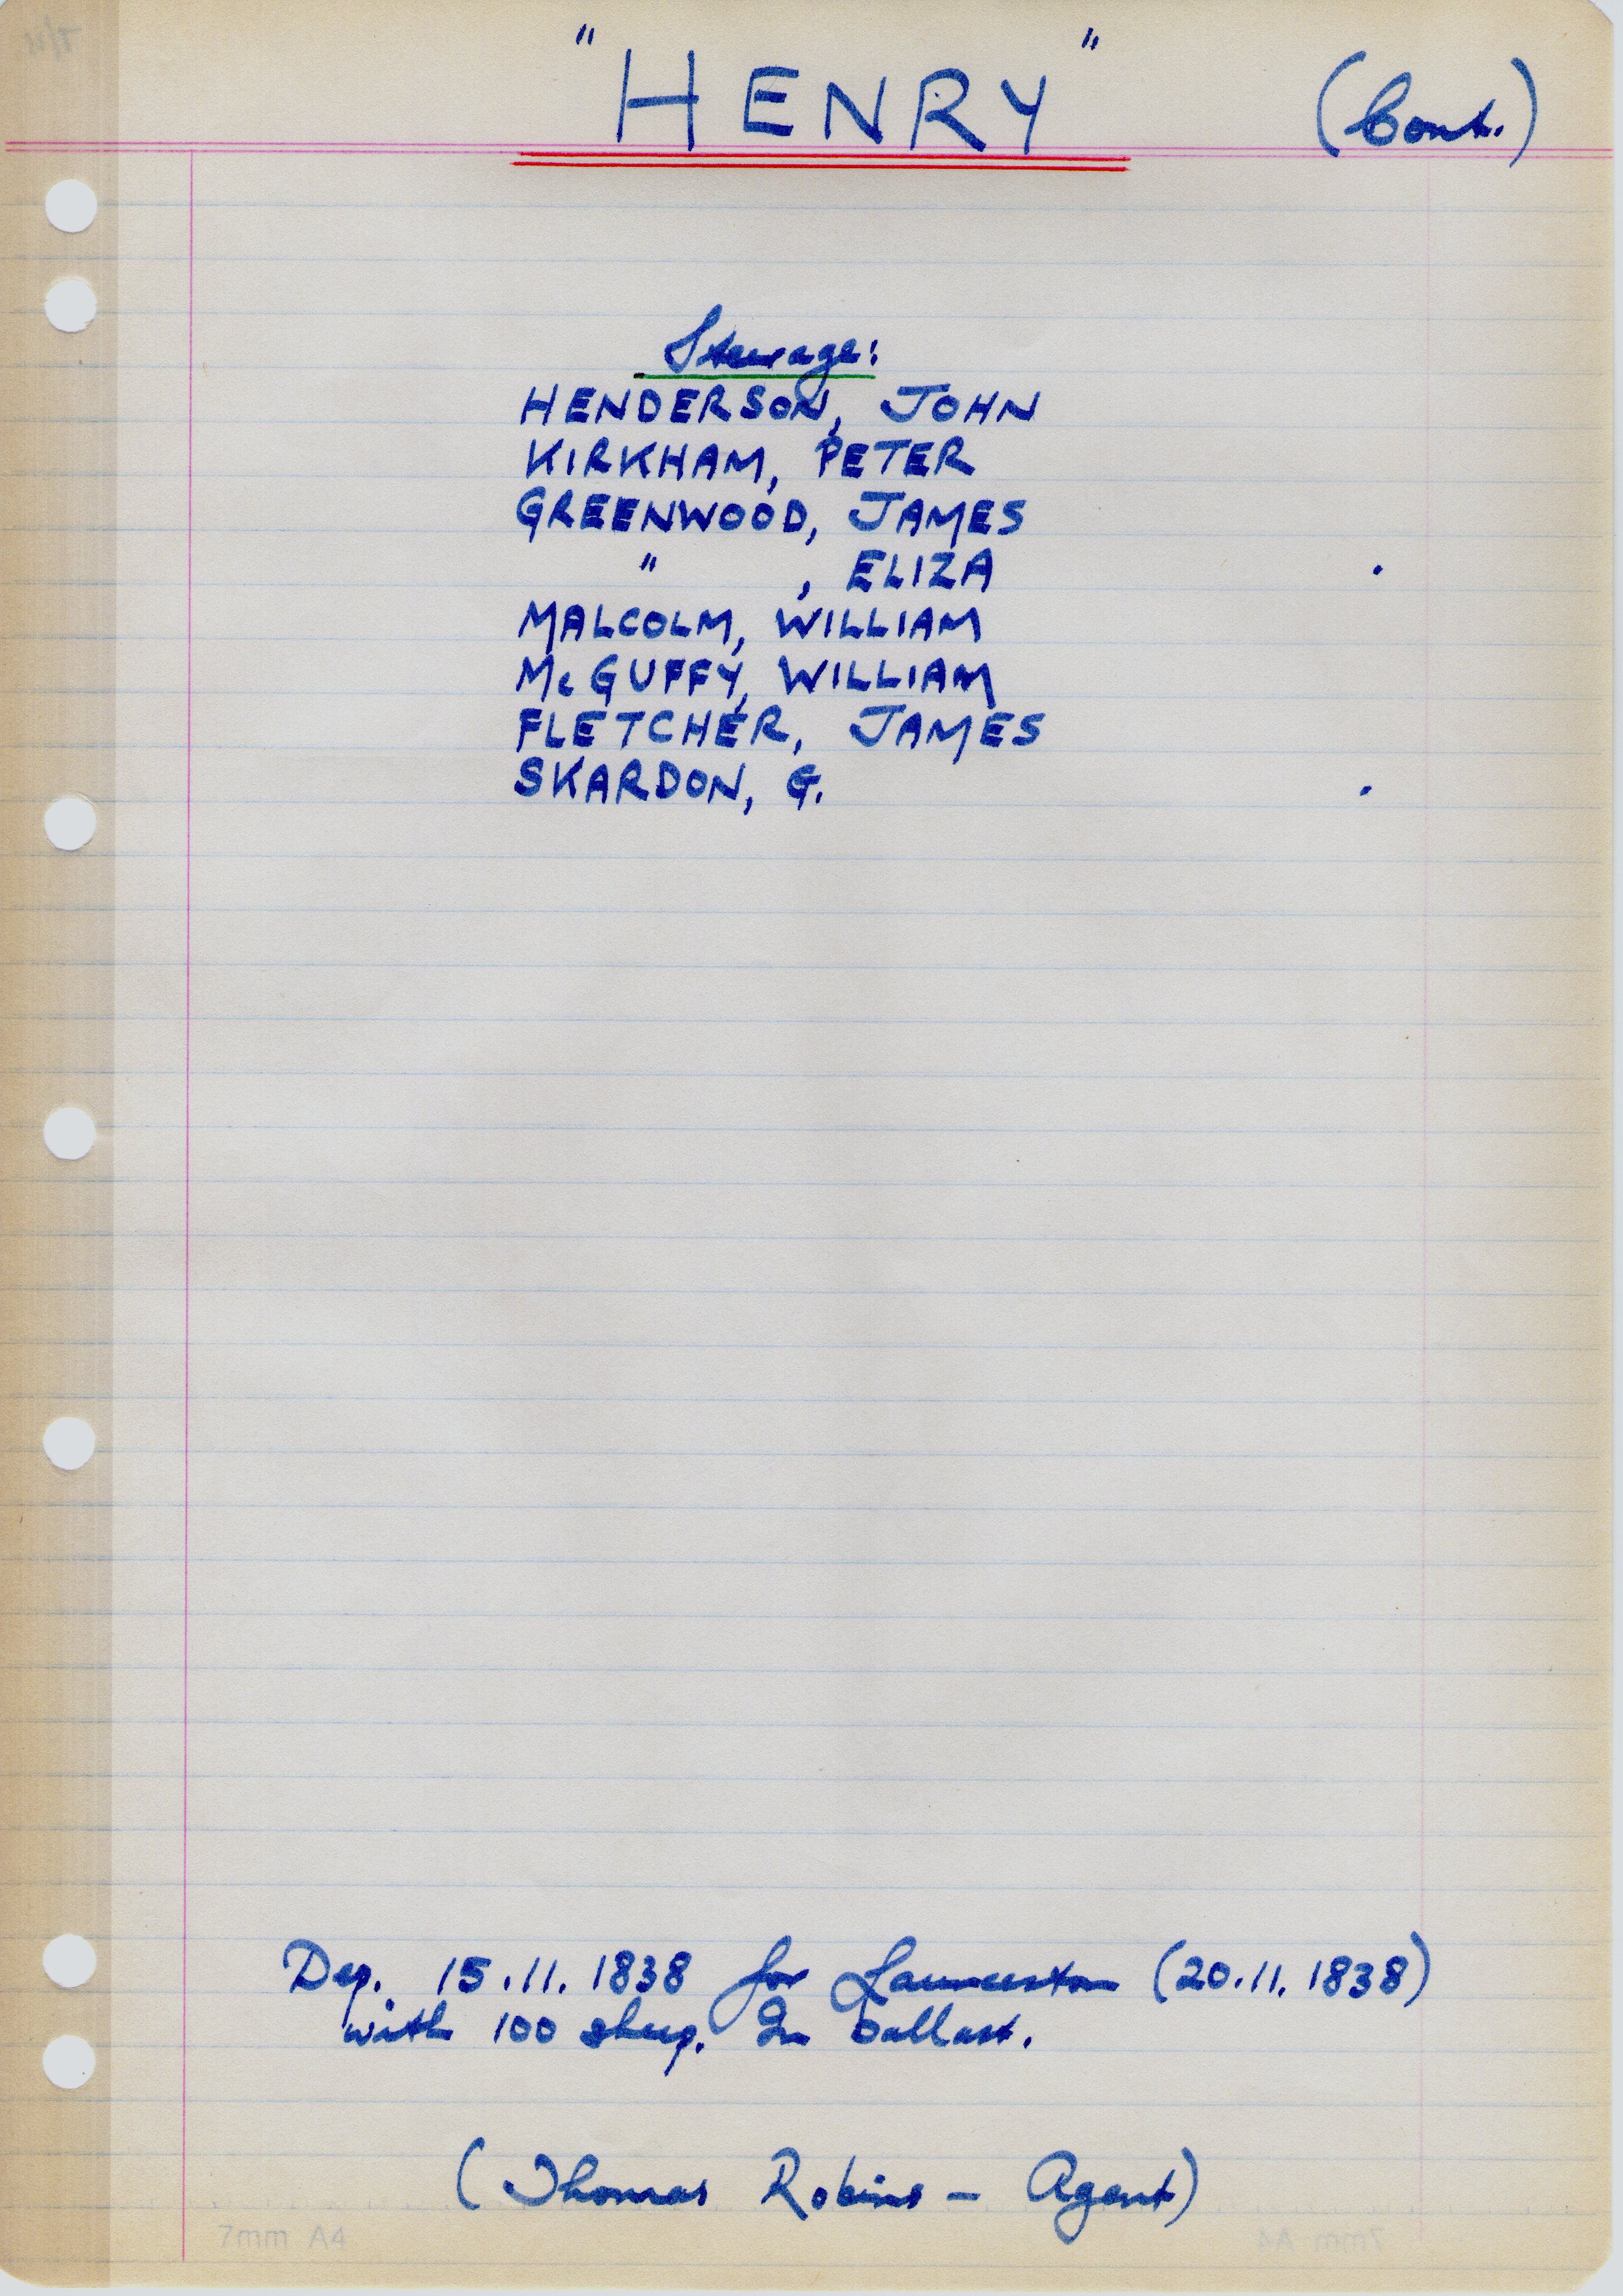 "HENRY" (Cont.)
Steerage:
HENDERSON, JOHN
KIRKHAM, PETER
GREENWOOD, JAMES
" , ELIZA
MALCOLM, WILLIAM
McGUFFY, WILLIAM
FLETCHER, JAMES
SKARDON, G.
Dep. 15.11.1838 for Launceston (20.11.1838)
with 100 sheep. In ballast.
(Thomas Robins - Agent)
7mm A4